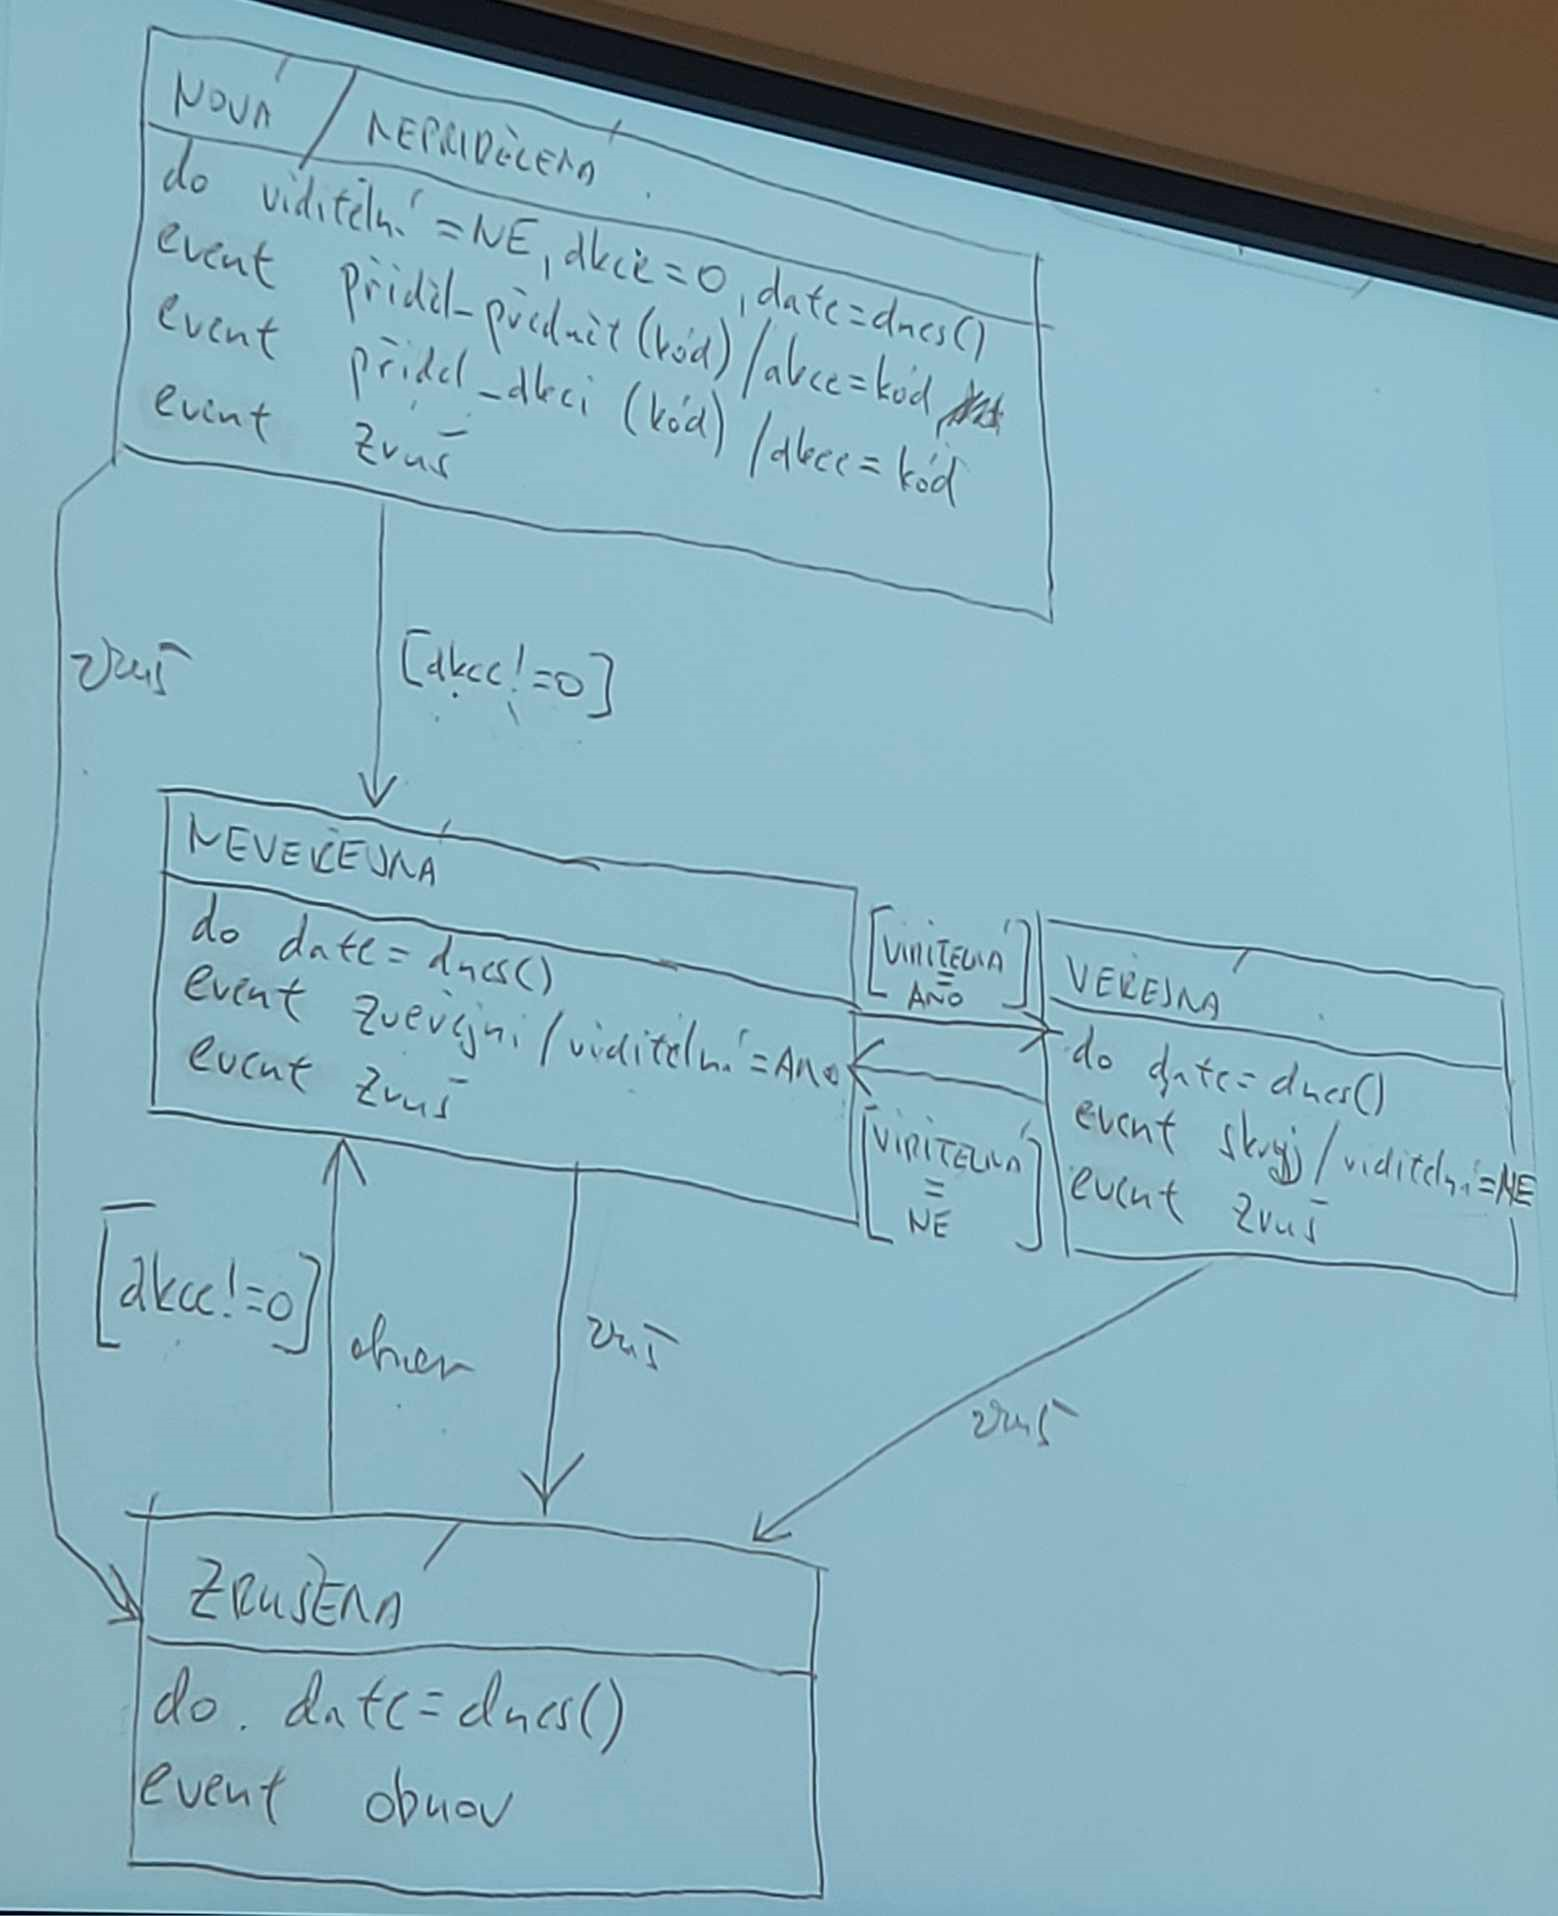 NOVÁ / NEPŘIDĚLENA
do viditelná=NE, akce=0, date=dnes()
event přiděl_předmět(kód)/akce=kód
event přiděl_akci (kód) /akce=kód
event zruš
zruš
[akce!=0]
NEVEŘEJNA
do date=dnes()
event zveřejni/viditelná=ANO
event zruš
[VIDITELNÁ
=
ANO]
VEŘEJNA
do date=dnes()
event skryj/viditelná=NE
event zruš
[VIDITELNÁ
=
NE]
[akce!=0]
obnov
zruš
zruš
ZRUŠENA
do date=dnes()
event obnov